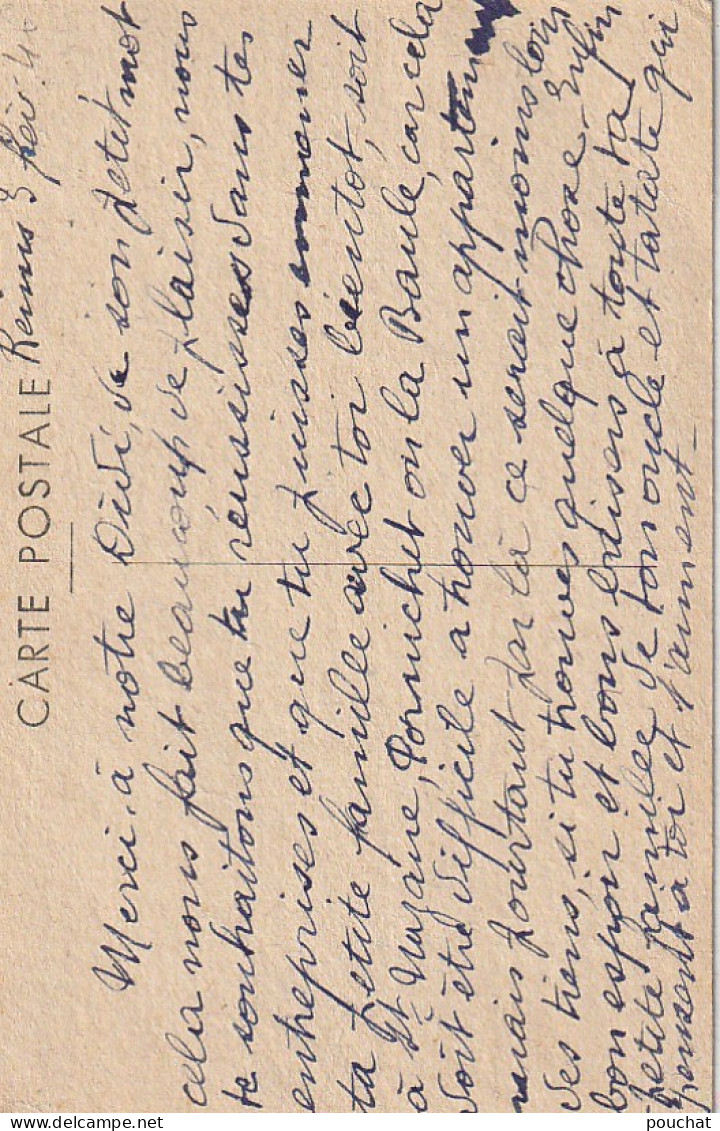 CARTE POSTALE
Reims 3 fév. 40
Merci à notre Didi, de son petit mot
cela nous fait beaucoup de plaisir, nous
te souhaitons que tu réussisses dans tes
entreprises et que tu puisses emmener
ta petite famille avec toi bientôt, soit
à St Nazaire, Pornichet ou la Baule, car cela
doit être difficile a trouver un appartement
mais pourtant par là ce serait moins loin
des tiens, si tu trouves quelque chose. Enfin
bon espoir et bons baisers à toute ta
petite famille de ton oncle et tatate qui
pensent à toi et t'aiment
www.delcampe.net
pouchat